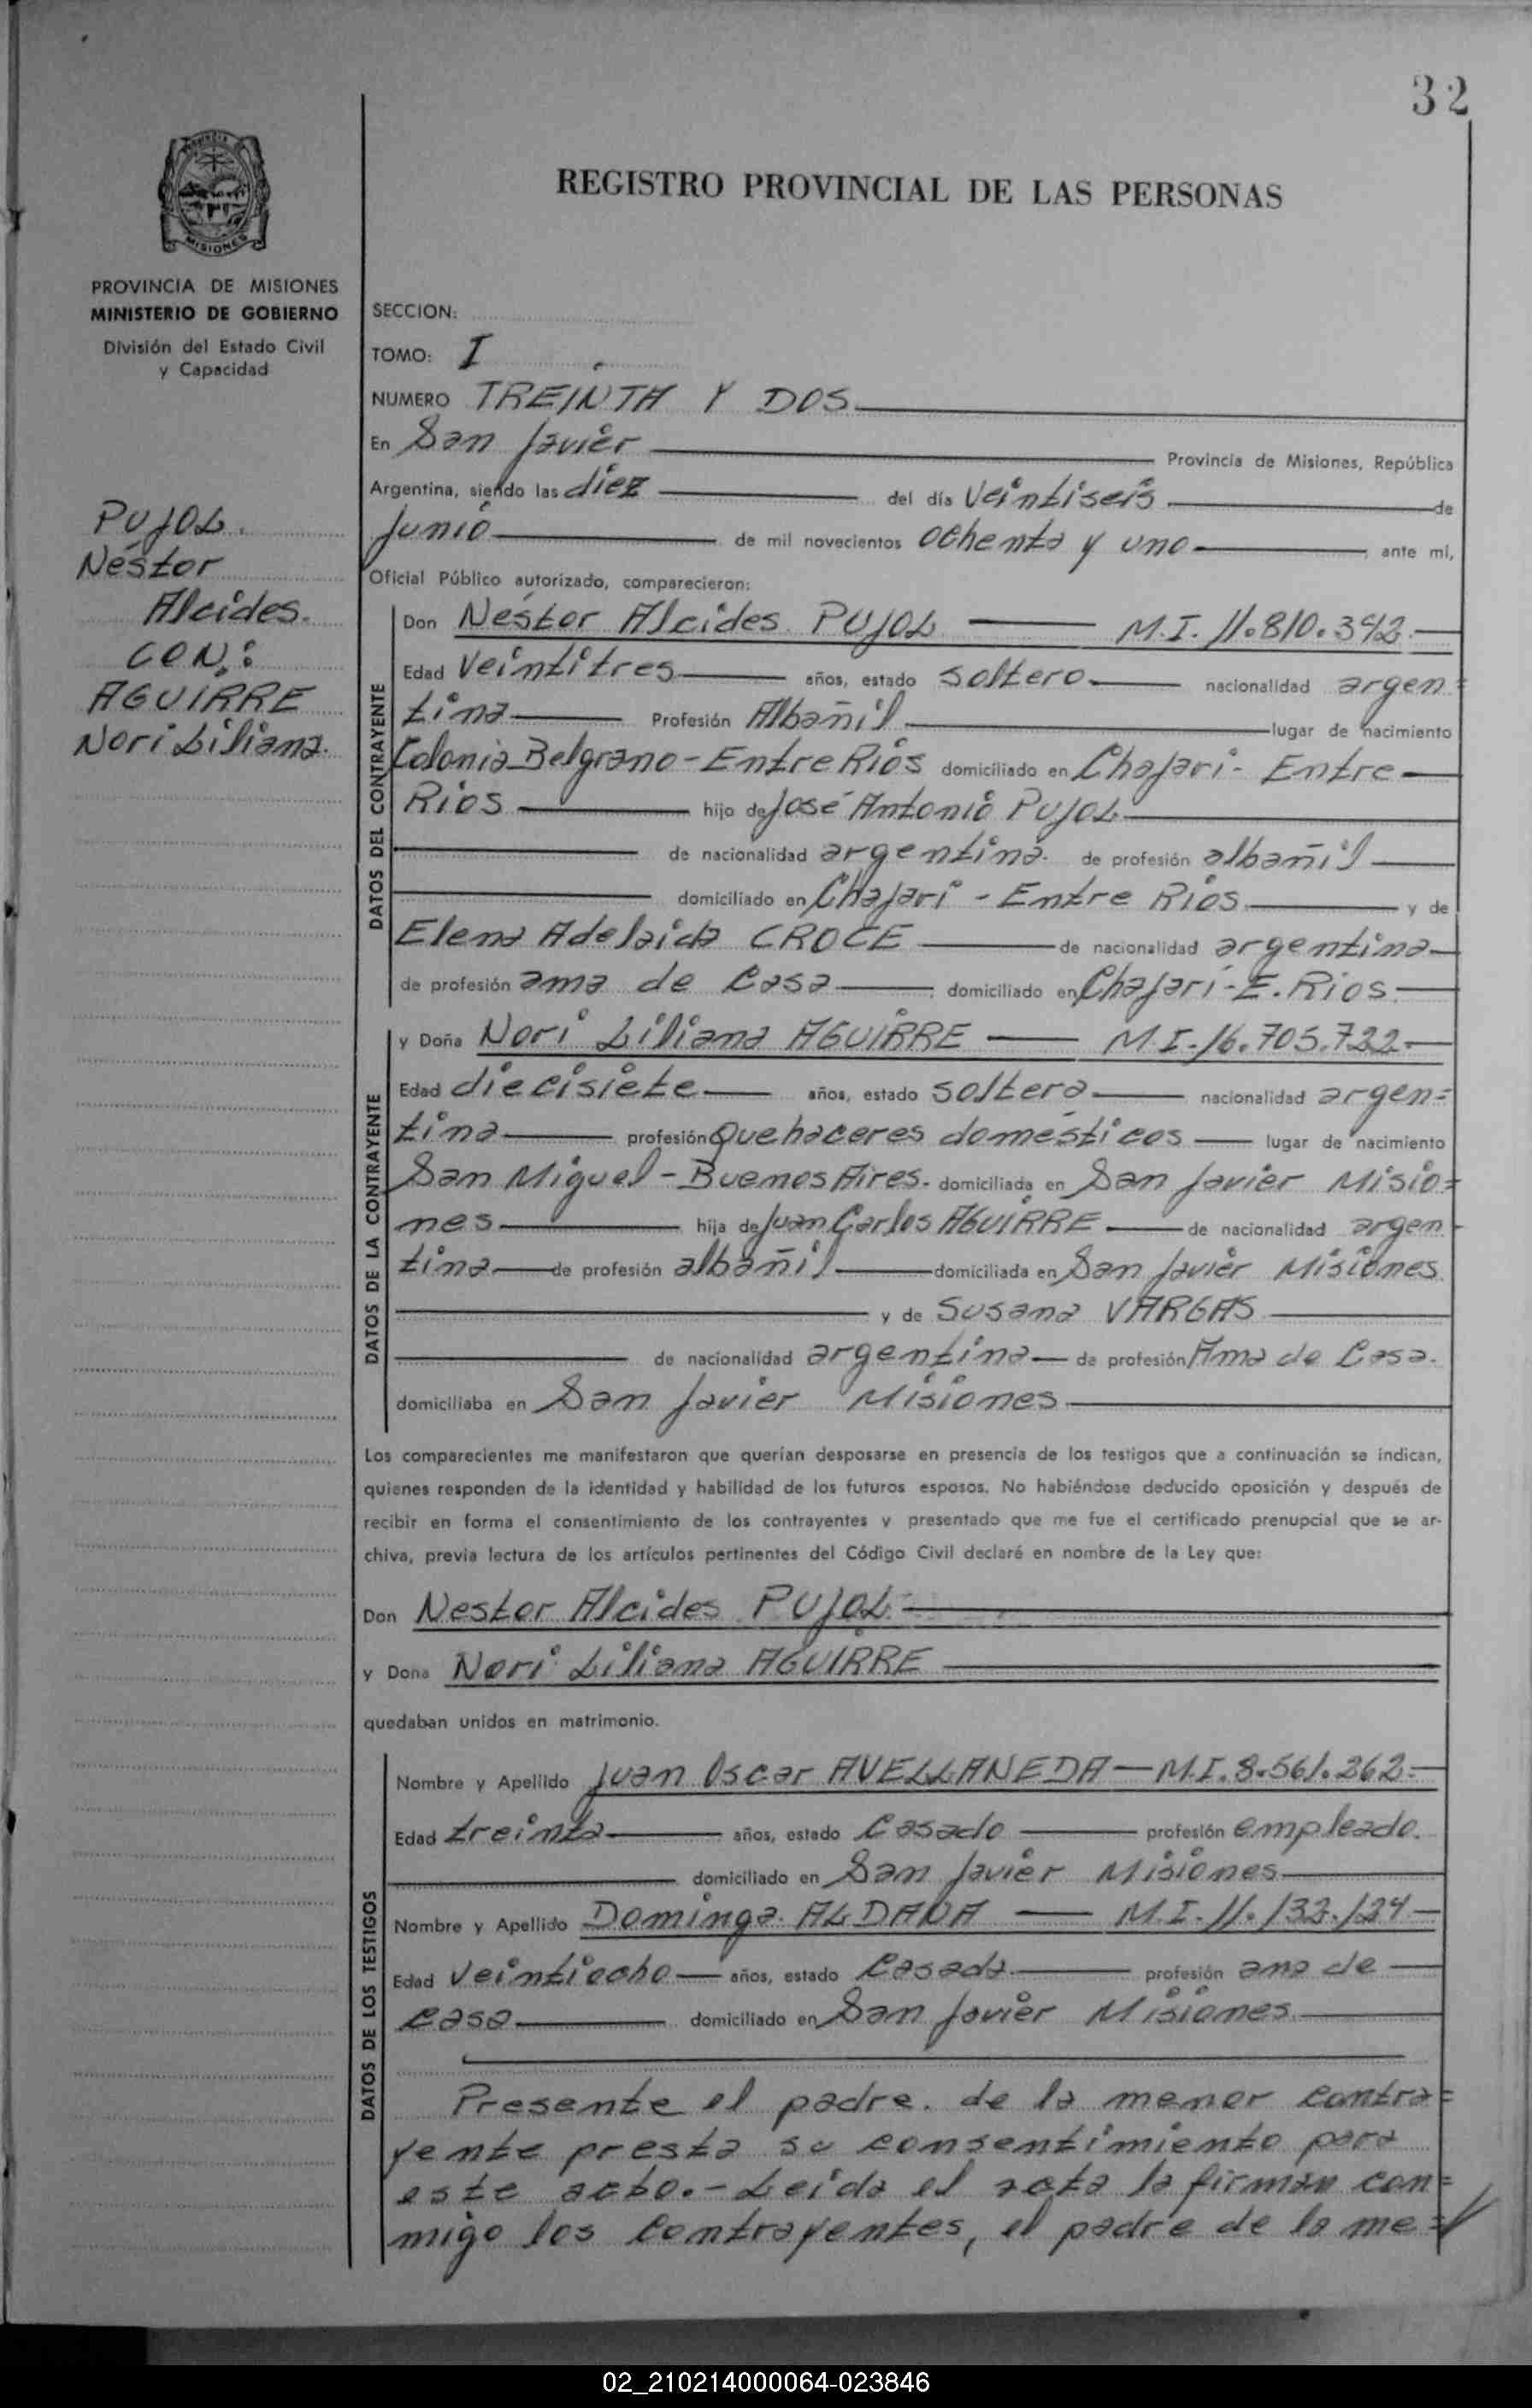 32
REGISTRO PROVINCIAL DE LAS PERSONAS
PROVINCIA
MISIONES
PROVINCIA DE MISIONES
MINISTERIO DE GOBIERNO
División del Estado Civil
y Capacidad
PUJOL.
Néstor
Alcides.
CON:
AGUIRRE
Nori Liliana.
SECCION:
TOMO: I
NUMERO TREINTA Y DOS
En San Javier Provincia de Misiones, República
Argentina, siendo las diez del día Veintiseis de
Junio de mil novecientos ochenta y uno ante mí,
Oficial Público autorizado, comparecieron:
DATOS DEL CONTRAYENTE
Don Néstor Alcides PUJOL — M.I. 11.810.342.
Edad Veintitres años, estado soltero nacionalidad argen=
tina Profesión Albañil lugar de nacimiento
Colonia Belgrano - Entre Rios domiciliado en Chajari - Entre
Rios hijo de José Antonio PUJOL
de nacionalidad argentina. de profesión albañil
domiciliado en Chajari - Entre Rios y de
Elena Adelaida CROCE de nacionalidad argentina
de profesión ama de Casa domiciliado en Chajari - E. Rios.
DATOS DE LA CONTRAYENTE
y Doña Nori Liliana AGUIRRE — M.I. 16.705.722.
Edad diecisiete años, estado soltera nacionalidad argen=
tina profesión Quehaceres domésticos lugar de nacimiento
San Miguel - Buenos Aires. domiciliada en San Javier Misio=
nes hija de Juan Carlos AGUIRRE de nacionalidad argen
tina de profesión albañil domiciliada en San Javier Misiones.
y de Susana VARGAS
de nacionalidad argentina de profesión Ama de Casa.
domiciliaba en San Javier Misiones
Los comparecientes me manifestaron que querían desposarse en presencia de los testigos que a continuación se indican,
quienes responden de la identidad y habilidad de los futuros esposos. No habiéndose deducido oposición y después de
recibir en forma el consentimiento de los contrayentes y presentado que me fue el certificado prenupcial que se ar-
chiva, previa lectura de los artículos pertinentes del Código Civil declaré en nombre de la Ley que:
Don Nestor Alcides PUJOL
y Dona Nori Liliana AGUIRRE
quedaban unidos en matrimonio.
DATOS DE LOS TESTIGOS
Nombre y Apellido Juan Oscar AVELLANEDA — M.I. 8.561.262.
Edad treinta años, estado Casado profesión empleado.
domiciliado en San Javier Misiones
Nombre y Apellido Dominga ALDANA — M.I. 11.133.124
Edad Veintiocho años, estado Casada profesión ama de
casa domiciliado en San Javier Misiones.
Presente el padre. de la menor contra=
yente presta su consentimiento para
este acto.- Leida el acta la firman con=
migo los contrayentes, el padre de la me=
02_210214000064-023846